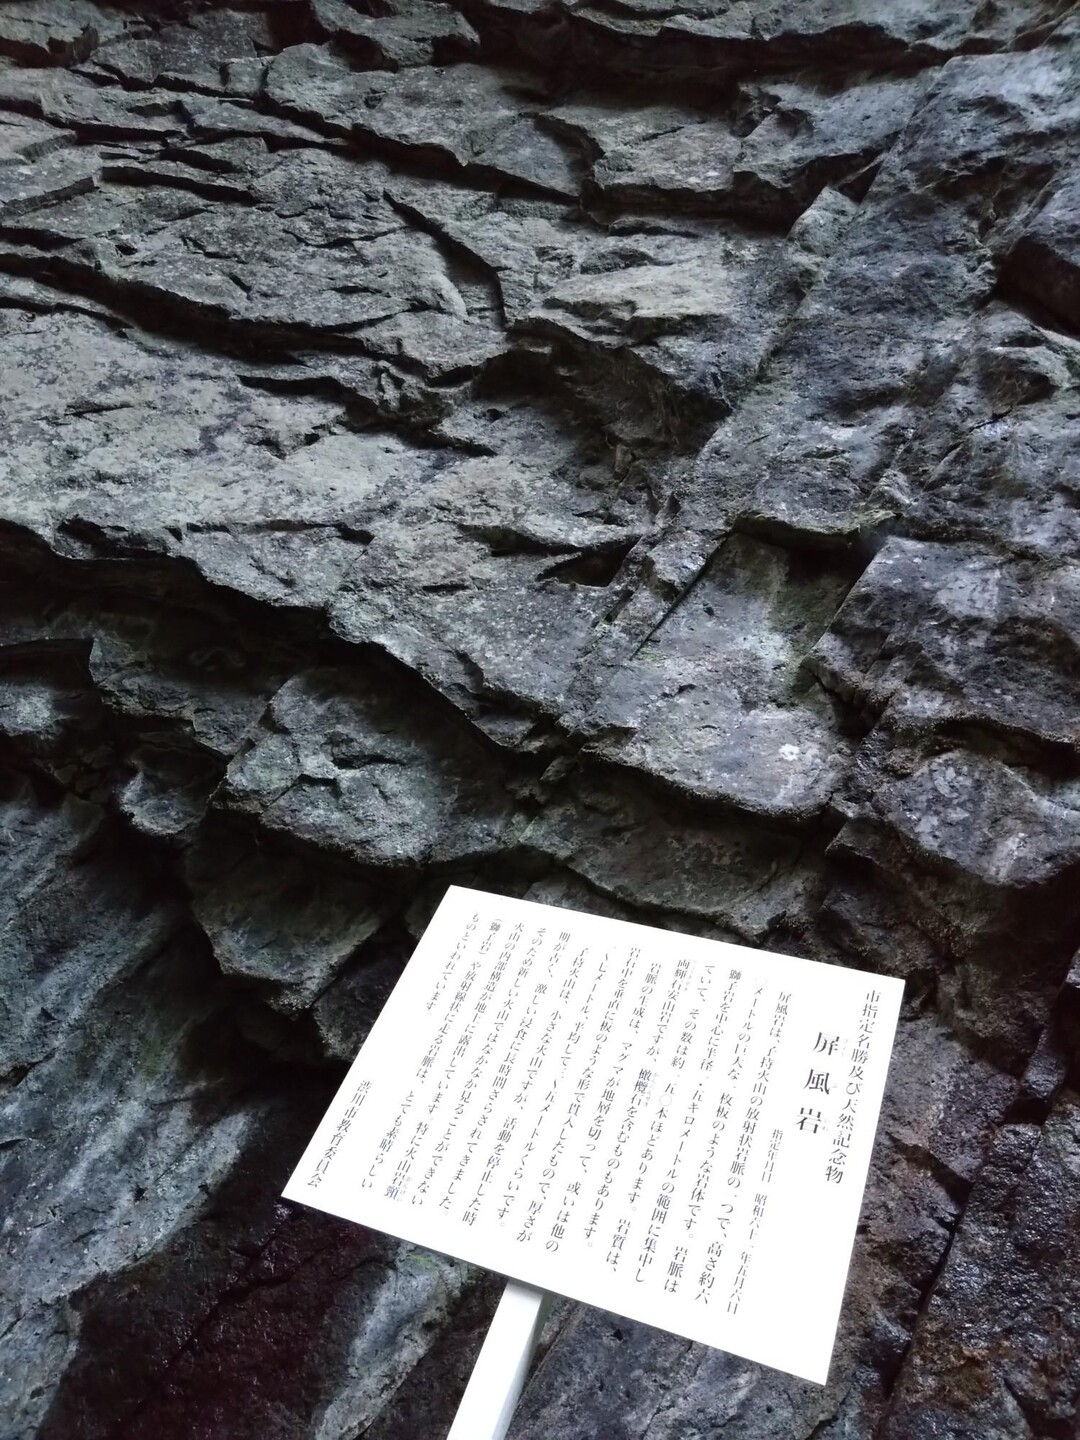 市指定名勝及び天然記念物
屏風岩
指定年月日 昭和六十一年五月六日
屏風岩は、子持火山の放射状岩脈の一つで、高さ約六
メートルの巨大な一枚板のような岩体です。岩脈は
獅子岩を中心に半径一・五キロメートルの範囲に集中し
ていて、その数は約一五〇本ほどあります。岩質は、
両輝石安山岩ですが、橄欖石を含むものもあります。
岩脈の生成は、マグマが地層を切って、或いは他の
岩石中を垂直に板のような形で貫入したもので、厚さが
メートル、平均して 五メートルくらいです。
子持火山は、小さな火山ですが、活動を停止した時
期が古く、激しい浸食に長時間さらされてきました。
そのため新しい火山ではなかなか見ることができない
火山の内部構造が地上に露出しています。特に火山岩頸
（獅子岩）や放射線状に走る岩脈は、とても素晴らしい
ものといわれています。
渋川市教育委員会